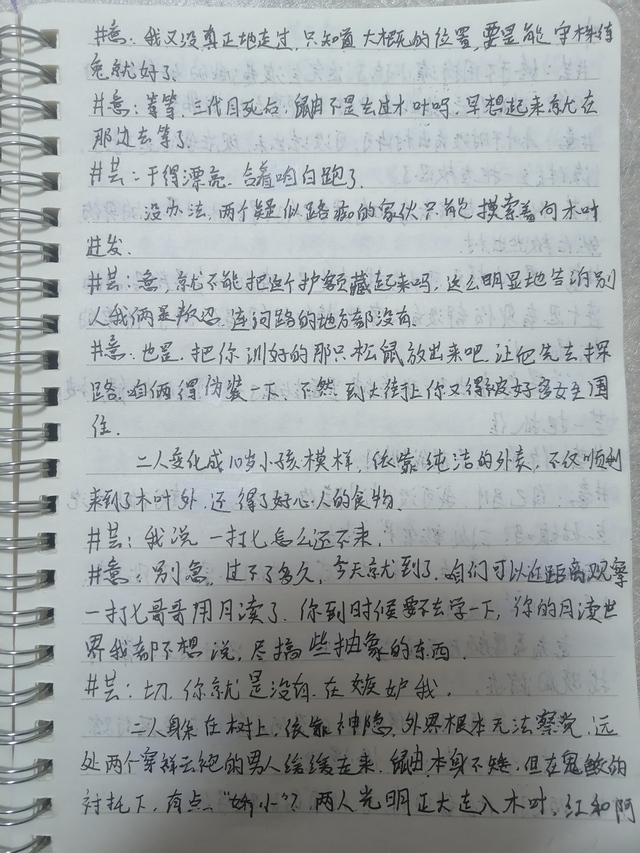 井意：我又没真正地走过，只知道大概的位置，要是能守株待
兔就好了
井意：等等，三代目死后，鼬不是去过木叶吗，早想起来就在
那边去等了
井芸：干得漂亮，合着咱白跑了．
没办法，两个疑似路痴的家伙只能摸索着向木叶
进发．
井芸：意，就不能把这个护额藏起来吗，这么明显地告诉别
人我俩是叛忍，连问路的地方都没有．
井意：也是，把你训好的那只松鼠放出来吧，让他先去探
路，咱俩得伪装一下，不然，到大街上你又得被好多女生围
住．
二人变化成10岁小孩模样，依靠纯洁的外表，不仅顺利
来到了木叶外，还得了好心人的食物．
井芸：我说一打七怎么还不来．
井意：别急，过不了多久，今天就到了，咱们可以近距离观察
一打七哥哥用月读了．你到时候要不去学一下，你的月读世
界我都不想说，尽搞些抽象的东西．
井芸：切，你就是没有，在嫉妒我．
二人躲在树上，依靠神隐，外界根本无法察觉，远
处两个穿祥云袍的男人缓缓走来，鼬本身不矮，但在鬼鲛的
衬托下，有点"娇小"？，两人光明正大走入木叶，红和阿